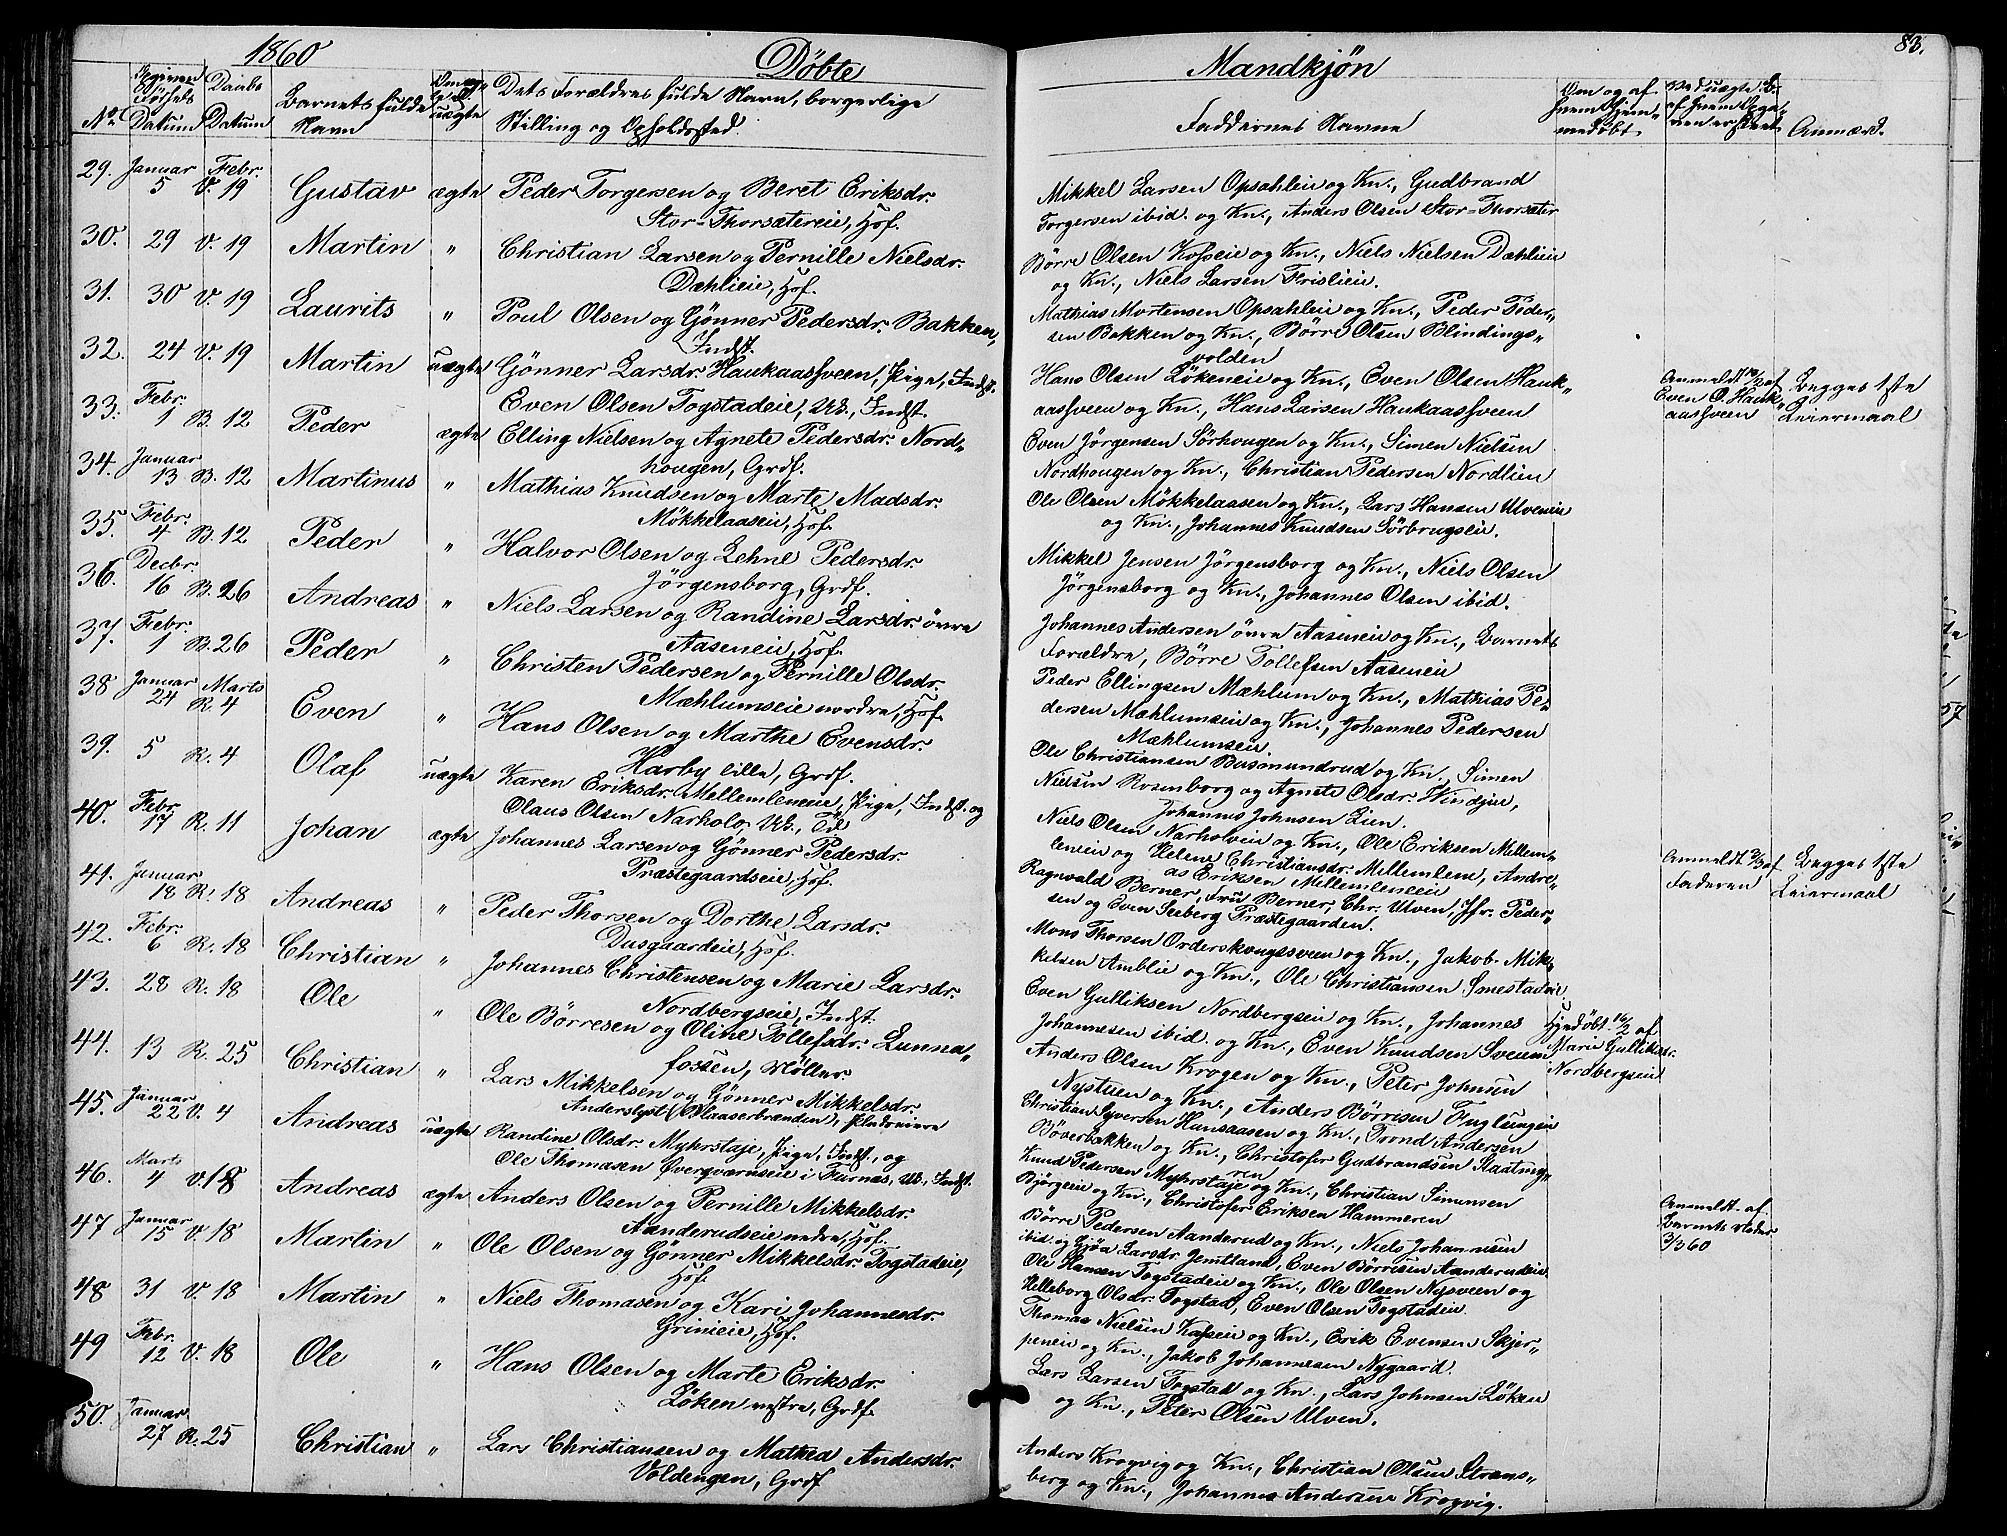 1860 Döbte Mandkjøn 83.
No. Opgiven Födsels Datum Daabs Datum Barnets fulde Navn Om ægte ell. uægte Dets Forældres fulde Navn, borgerlige Stilling og Opholdssted. Faddernes Navne Om og af hvem hjemmedøbt Anmærk.
29. Januar 5 Febr. V. 19 Gustav ægte Peder Torgersen og Beret Eriksdr.
Stor-Thorsætereie, Hsf.
Mikkel Larsen Opsahleie og Kn., Gudbrand
Torgersen ibid. og Kn., Anders Olsen Stor-Thorsæter
30. 29 V. 19 Martin " Christian Larsen og Pernille Nielsdr.
Dæhlieie, Hsf.
Börre Olsen Kosseie og Kn., Niels Nielsen Dæhlieie
og Kn., Niels Larsen Frislieie.
31. 30 V. 19 Laurits " Poul Olsen og Gönner Pedersdr. Bakken,
Indst.
Mathias Mortensen Opsahleie og Kn., Peder Peder„
sen Bakken og Kn., Börre Olsen Blindings„
volden
32. 24 V. 19 Martin uægte Gönner Larsdr. Haukaassveen, Pige, Indst.
Even Olsen Togstadeie, Uk., Indst.
Hans Olsen Lökeneie og Kn., Even Olsen Hauk„
aassveen og Kn., Hans Larsen Haukaassveen
Anmeldt af
Even O. Hauk„
aassveen
Begges 1ste
Leiermaal
33. Febr. 1 B. 12 Peder ægte Elling Nielsen og Agnete Pedersdr. Nord„
hougen, Grdf.
Even Jörgensen Sörhougen og Kn., Simen Nielsen
Nordhougen og Kn., Christian Pedersen Nordlien
34. Januar 13 B. 12 Martinus " Mathias Knudsen og Marte Madsdr.
Mökkelaaseie, Hsf.
Ole Olsen Mökkelaasen og Kn., Lars Hansen Ulveneie
og Kn., Johannes Knudsen Sörbrugseie.
35. Febr. 4 B. 12 Peder " Halvor Olsen og Lehne Pedersdr.
Jörgensborg, Grdf.
Mikkel Jensen Jörgensborg og Kn., Niels Olsen
Jörgensborg og Kn., Johannes Olsen ibid.
36. Decbr. 16 B. 26 Andreas " Niels Larsen og Randine Larsdr. övre
Aaseneie, Hsf.
Johannes Andersen övre Aaseneie og Kn., Barnets
Forældre, Börre Tollefsen Aaseneie
37. Febr. 1 B. 26 Peder " Christen Pedersen og Pernille Olsdr.
Mæhlumseie nordre, Hsf.
Peder Ellingsen Mæhlum og Kn., Mathias Pe„
dersen Mæhlumseie og Kn., Johannes Pedersen
Mæhlumseie.
38 Januar 24 Marts R. 4 Even " Hans Olsen og Marthe Evensdr.
Harby lille, Grdf.
Ole Christiansen Busmundrud og Kn., Simen
Nielsen Rosenborg og Agnete Olsdr. Windjue,
Johannes Johnsen Lien.
39. 5 R. 4 Olaf uægte Karen Eriksdr. Mellemleneie, Pige, Indst. og
Olaus Olsen Narholo, Uk.,
Niels Olsen Narholoeie og Kn., Ole Eriksen Mellem„
leneie og Helene Christiansdr. Mellemlene, Andre„
as Eriksen Mellemleneie
Anmeldt af
Faderen
Begges 1ste
Leiermaal
40. Febr. 17 R. 11 Johan ægte Johannes Larsen og Gönner Pedersdr.
Præstegaardseie, Hsf.
Ragnvald Berner, Fru Berner, Chr. Ulven, Jfr. Peder„
sen og Even Seeberg Præstegaarden.
41. Januar 18 R. 18 Andreas " Peder Thorsen og Dorthe Larsdr.
Dusgaardeie, Hsf.
Mons Thorsen Orderskougssveen og Kn., Jakob Mik„
kelsen Amblie og Kn., Ole Christiansen Smestadeie
42. Febr. 6 R. 18 Christian " Johannes Christensen og Marie Larsdr.
Nordbergseie, Indst.
Even Gulliksen Nordbergseie og Kn., Johannes
Johannesen ibid. og Kn., Even Knudsen Sveine
Hjmdöbt 16/2 af
Marie Gulliksdr.
Nordbergseie
43. 28 R. 18 Ole " Ole Börresen og Oline Tollefsdr. Lunna„
fossen, Möller.
Anders Olsen Krogen og Kn., Peter Johnsen
Nystuen og Kn., Anders Börresen Fuglungen
44. 13 R. 25 Christian " Lars Mikkelsen og Gönner Mikkelsdr.
Anderslyst (Blaaserbrænden), Pladseiere
Christian Syversen Hansaasen og Kn., Trond Andersen
Böverbakken og Kn., Christofer Gudbrandsen Slaatmy„
ren
45. Januar 22 V. 4 Andreas uægte Randine Olsdr. Myhrstaje, Pige, Indst., og
Ole Thomasen Øvergværnseie i Furnæs, Uk. Indst.
Knud Pedersen Myhrstaje og Kn., Christian Simensen
Bjørgeie og Kn., Christofer Eriksen Hammeren
Anmeldt af
Barnets Moder
3/3 60
46. Marts 4 V. 18 Andreas ægte Anders Olsen og Pernille Mikkelsdr.
Aanderudseie nedre, Hsf.
Börre Pedersen Aanderud og Kn., Niels Johannesen
ibid. og Gjöa Larsdr. Jemtland, Even Börresen Aanderudeie
47 Januar 15 V. 18 Martin " Ole Olsen og Gönner Mikkelsdr. Togstadeie,
Hsf.
Ole Hansen Togstadeie og Kn., Ole Olsen Nysveen og
Helleborg Olsdr. Togstad, Even Olsen Togstadeie.
48 31 V. 18 Martin " Niels Thomasen og Kari Johannesdr.
Grinieie, Hsf.
Thomas Nielsen Kosseie og Kn., Erik Evensen Skjer„
peneie og Kn., Jakob Johannesen Nygaard.
49 Febr. 12 V. 18 Ole " Hans Olsen og Marte Eriksdr.
Löken vestre, Grdf.
Lars Larsen Togstad og Kn., Lars Johnsen Löken
og Kn., Peter Olsen Ulven.
50. Januar 27 R. 25 Christian " Lars Christiansen og Mathea Andersdr.
Voldengen, Grdf
Anders Krogvig og Kn., Christian Olsen Strans„
berg og Kn., Johannes Andersen Krogvig.